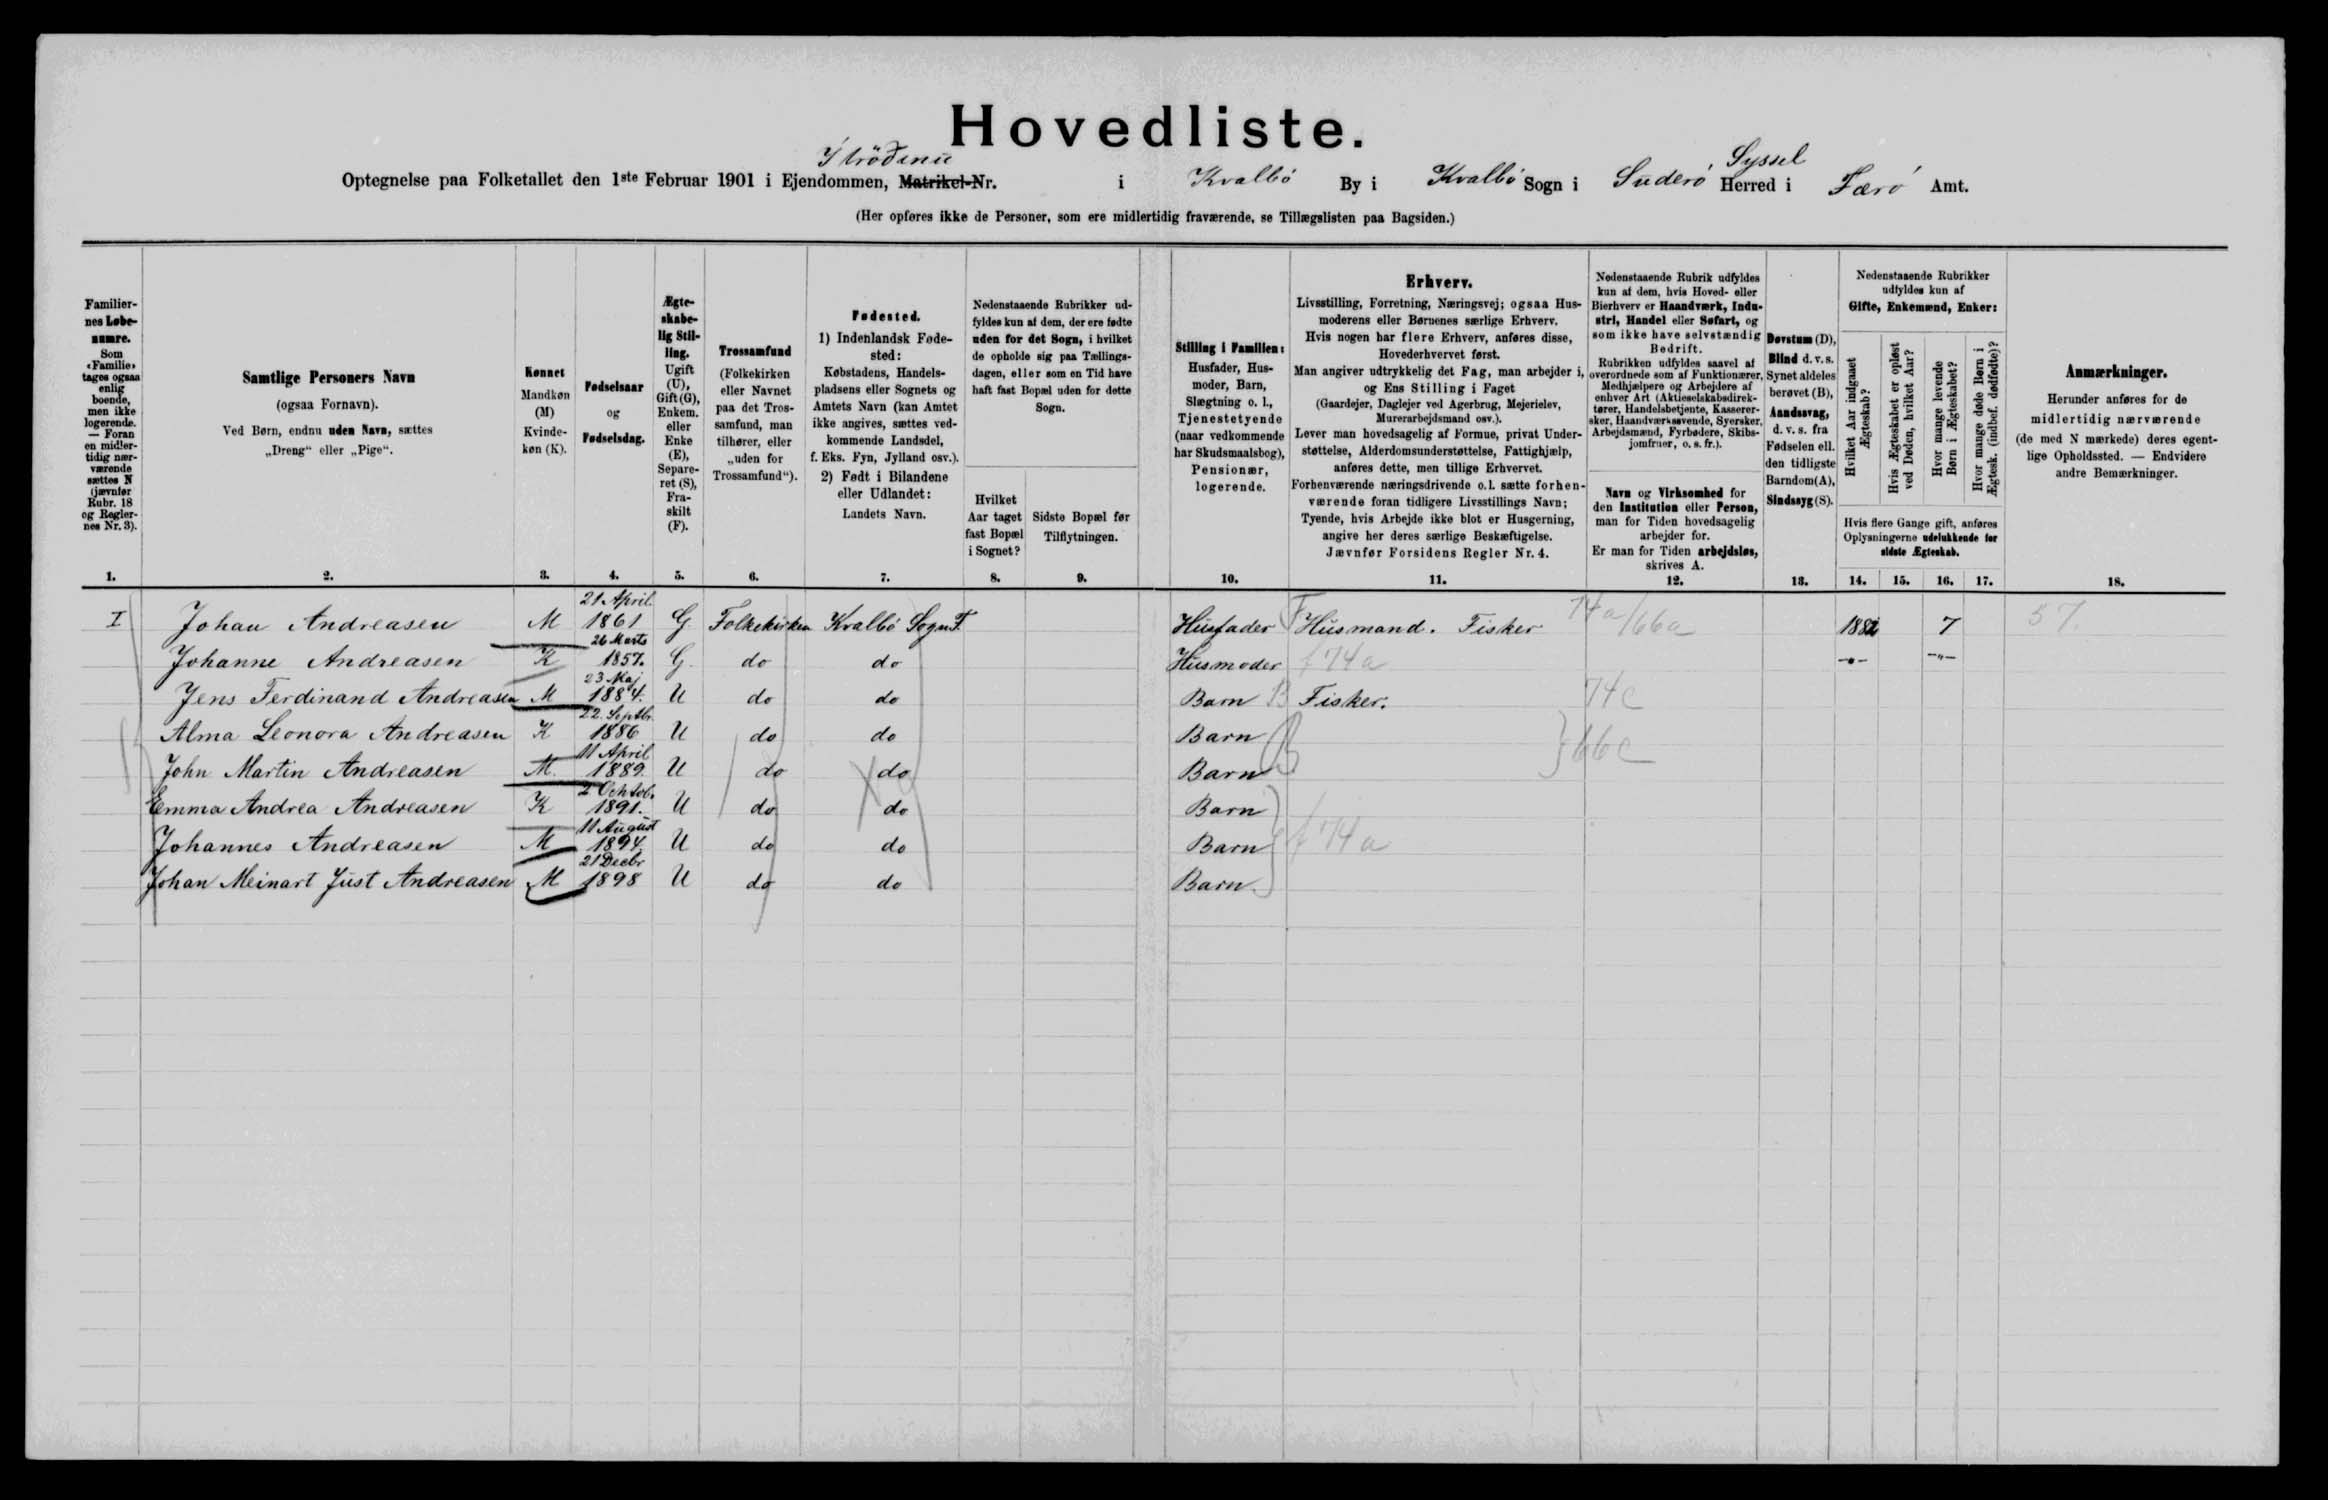 Hovedliste.
Í tröðinni
Optegnelse paa Folketallet den 1ste Februar 1901 i Ejendommen, Matrikel-Nr. i Kvalbö By i Kvalbö Sogn i Suderö Syssel Herred i Færö Amt.
(Her opføres ikke de Personer, som ere midlertidig fraværende, se Tillægslisten paa Bagsiden.)
Familiernes Løbenumre. Som «Familie» tages ogsaa enlig boende, men ikke logerende. — Foran en midlertidig nærværende sættes N (jævnfør Rubr. 18 og Reglernes Nr. 3).
Samtlige Personers Navn
(ogsaa Fornavn).
Ved Børn, endnu uden Navn, sættes
„Dreng“ eller „Pige“.
Kønnet
Mandkøn (M) Kvindekøn (K).
Fødselsaar og Fødselsdag.
Ægteskabelig Stilling. Ugift (U), Gift (G), Enkem. eller Enke (E), Separeret (S), Fraskilt (F).
Trossamfund
(Folkekirken eller Navnet paa det Trossamfund, man tilhører, eller „uden for Trossamfund“).
Fødested.
1) Indenlandsk Fødested: Købstadens, Handelspladsens eller Sognets og Amtets Navn (kan Amtet ikke angives, sættes vedkommende Landsdel, f. Eks. Fyn, Jylland osv.).
2) Født i Bilandene eller Udlandet: Landets Navn.
Nedenstaaende Rubrikker udfyldes kun af dem, der ere fødte uden for det Sogn, i hvilket de opholde sig paa Tællingsdagen, eller som en Tid have haft fast Bopæl uden for dette Sogn.
Hvilket Aar taget fast Bopæl i Sognet?
Sidste Bopæl før Tilflytningen.
Stilling i Familien: Husfader, Husmoder, Barn, Slægtning o. l., Tjenestetyende (naar vedkommende har Skudsmaalsbog), Pensionær, logerende.
Erhverv.
Livsstilling, Forretning, Næringsvej; ogsaa Husmoderens eller Børnenes særlige Erhverv.
Hvis nogen har flere Erhverv, anføres disse, Hovederhvervet først.
Man angiver udtrykkelig det Fag, man arbejder i, og Ens Stilling i Faget
(Gaardejer, Daglejer ved Agerbrug, Mejerielev, Murerarbejdsmand osv.).
Lever man hovedsagelig af Formue, privat Understøttelse, Alderdomsunderstøttelse, Fattighjælp, anføres dette, men tillige Erhvervet.
Forhenværende næringsdrivende o. l. sætte forhenværende foran tidligere Livsstillings Navn;
Tyende, hvis Arbejde ikke blot er Husgerning, angive her deres særlige Beskæftigelse.
Jævnfør Forsidens Regler Nr. 4.
Nedenstaaende Rubrik udfyldes kun af dem, hvis Hoved- eller Bierhverv er Haandværk, Industri, Handel eller Søfart, og som ikke have selvstændig Bedrift.
Rubrikken udfyldes saavel af overordnede som af Funktionærer, Medhjælpere og Arbejdere af enhver Art (Aktieselskabsdirektører, Handelsbetjente, Kasserersker, Haandværkssvende, Syersker, Arbejdsmænd, Fyrbødere, Skibsjomfruer, o. s. fr.).
Navn og Virksomhed for den Institution eller Person, man for Tiden hovedsagelig arbejder for.
Er man for Tiden arbejdsløs, skrives A.
Døvstum (D), Blind d. v. s. Synet aldeles berøvet (B), Aandssvag, d. v. s. fra Fødselen ell. den tidligste Barndom (A), Sindssyg (S).
Nedenstaaende Rubrikker udfyldes kun af
Gifte, Enkemænd, Enker:
Hvilket Aar indgaaet Ægteskab?
Hvis Ægteskabet er opløst ved Døden, hvilket Aar?
Hvor mange levende Børn i Ægteskabet?
Hvor mange døde Børn i Ægtesk. (indbef. dødfødte)?
Hvis flere Gange gift, anføres Oplysningerne udelukkende for sidste Ægteskab.
Anmærkninger.
Herunder anføres for de midlertidig nærværende (de med N mærkede) deres egentlige Opholdssted. — Endvidere andre Bemærkninger.
1. 2. 3. 4. 5. 6. 7. 8. 9. 10. 11. 12. 13. 14. 15. 16. 17. 18.
I Johan Andreasen M 21 April 1861 G Folkekirken Kvalbö Sogn F. Husfader F Husmand. Fisker 74a/66a 1882 7 57.
Johanne Andreasen K 26 Marts 1857. G. do do Husmoder f 74a -"- -"-
Jens Ferdinand Andreasen M 23 Maj 1884. U do do Barn B Fisker. 74c
Alma Leonora Andreasen K 22. Septbr. 1886 U do do Barn B } 66c
John Martin Andreasen M. 11 April 1889. U do do Barn
Emma Andrea Andreasen K 2 Octob. 1891. U do do Barn
Johannes Andreasen M 11 August 1894. U do do Barn f 74a
Johan Meinart Just Andreasen M 21 Decbr 1898 U do do Barn